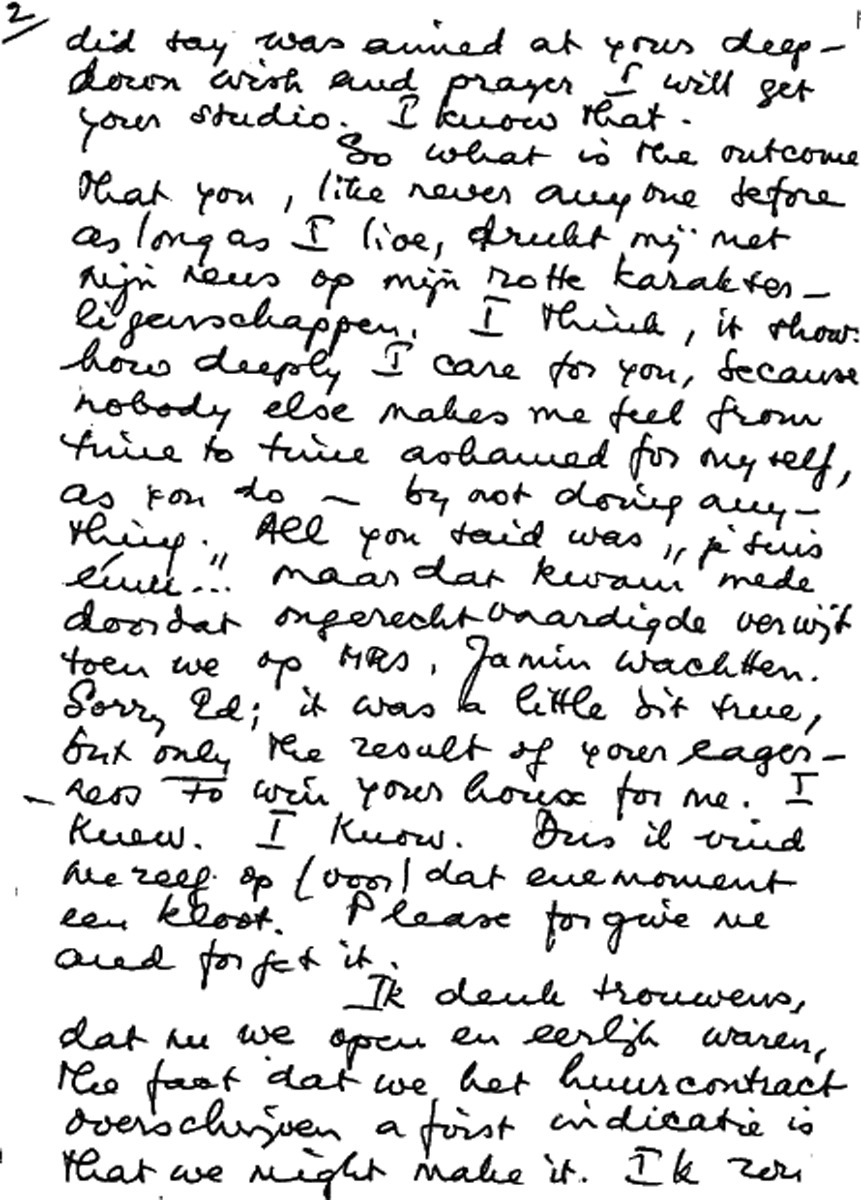 2/
did say was aimed at your deep-
down wish and prayer I will get
your studio. I know that.
So what is the outcome
that you, like never anyone before
as long as I live, drukt mij met
mijn neus op mijn rotte karakter-
eigenschappen. I think, it shows
how deeply I care for you, because
nobody else makes me feel from
time to time ashamed for myself,
as you do - by not doing any-
thing. All you said was „je suis
ému..." maar dat kwam mede
door dat ongerechtvaardigde verwijt
toen we op MRS. Jamin wachtten.
Sorry Ed; it was a little bit true,
but only the result of your eager-
ness to win your house for me. I
knew. I know. Dus ik vind
mezelf op (voor) dat ene moment
een kloot. Please forgive me
and forget it.
Ik denk trouwens,
dat nu we open en eerlijk waren,
the fact dat we het huurcontract
overschrijven a first indicatie is
that we might make it. Ik zou